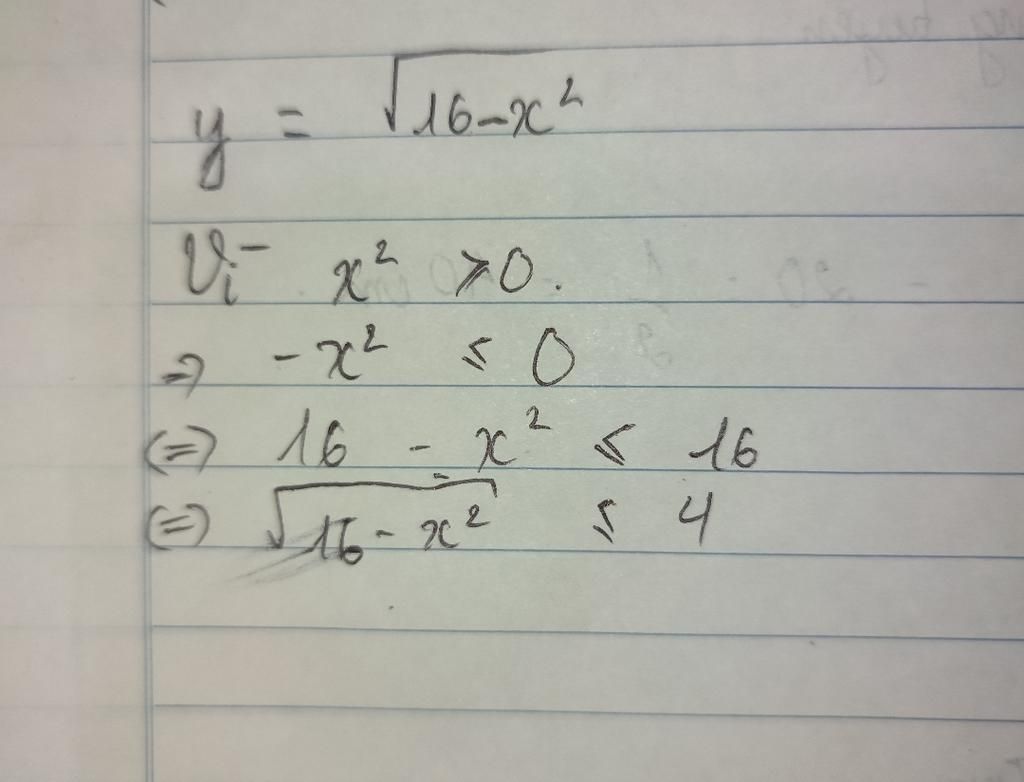 y = √(16-x²)
Vì x² ≥ 0.
=> -x² ≤ 0
(=) 16 - x² ≤ 16
(=) √(16 - x²) ≤ 4